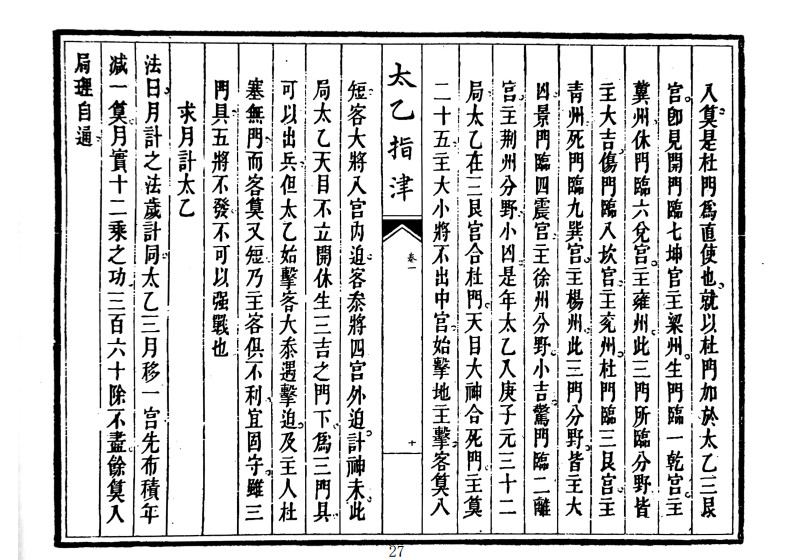 入筭是杜門爲直使也就以杜門加於太乙三艮
宮卽見開門臨七坤宮主梁州生門臨一乾宮主
冀州休門臨六兌宮主雍州此三門所臨分野皆
主大吉傷門臨八坎宮主兗州杜門臨三艮宮主
青州死門臨九巽宮主楊州此三門分野皆主大
凶景門臨四震宮主徐州分野小吉驚門臨二離
宮主荆州分野小凶是年太乙入庚子元三十二
局太乙在三艮宮合杜門天目大神合死門主筭
二十五主大小將不出中宮始擊地主擊客筭八
太乙指津
卷一
十
短客大將入宮内迫客叅將四宮外迫計神未此
局太乙天目不立開休生三吉之門下爲三門具
可以出兵但太乙始擊客大叅遇擊迫及主人杜
塞無門而客筭又短乃主客俱不利宜固守雖三
門具五將不發不可以强戰也
求月計太乙
法日月計之法歲計同太乙三月移一宮先布積年
減一筭月實十二乘之功三百六十除不盡餘筭入
局理自通
27